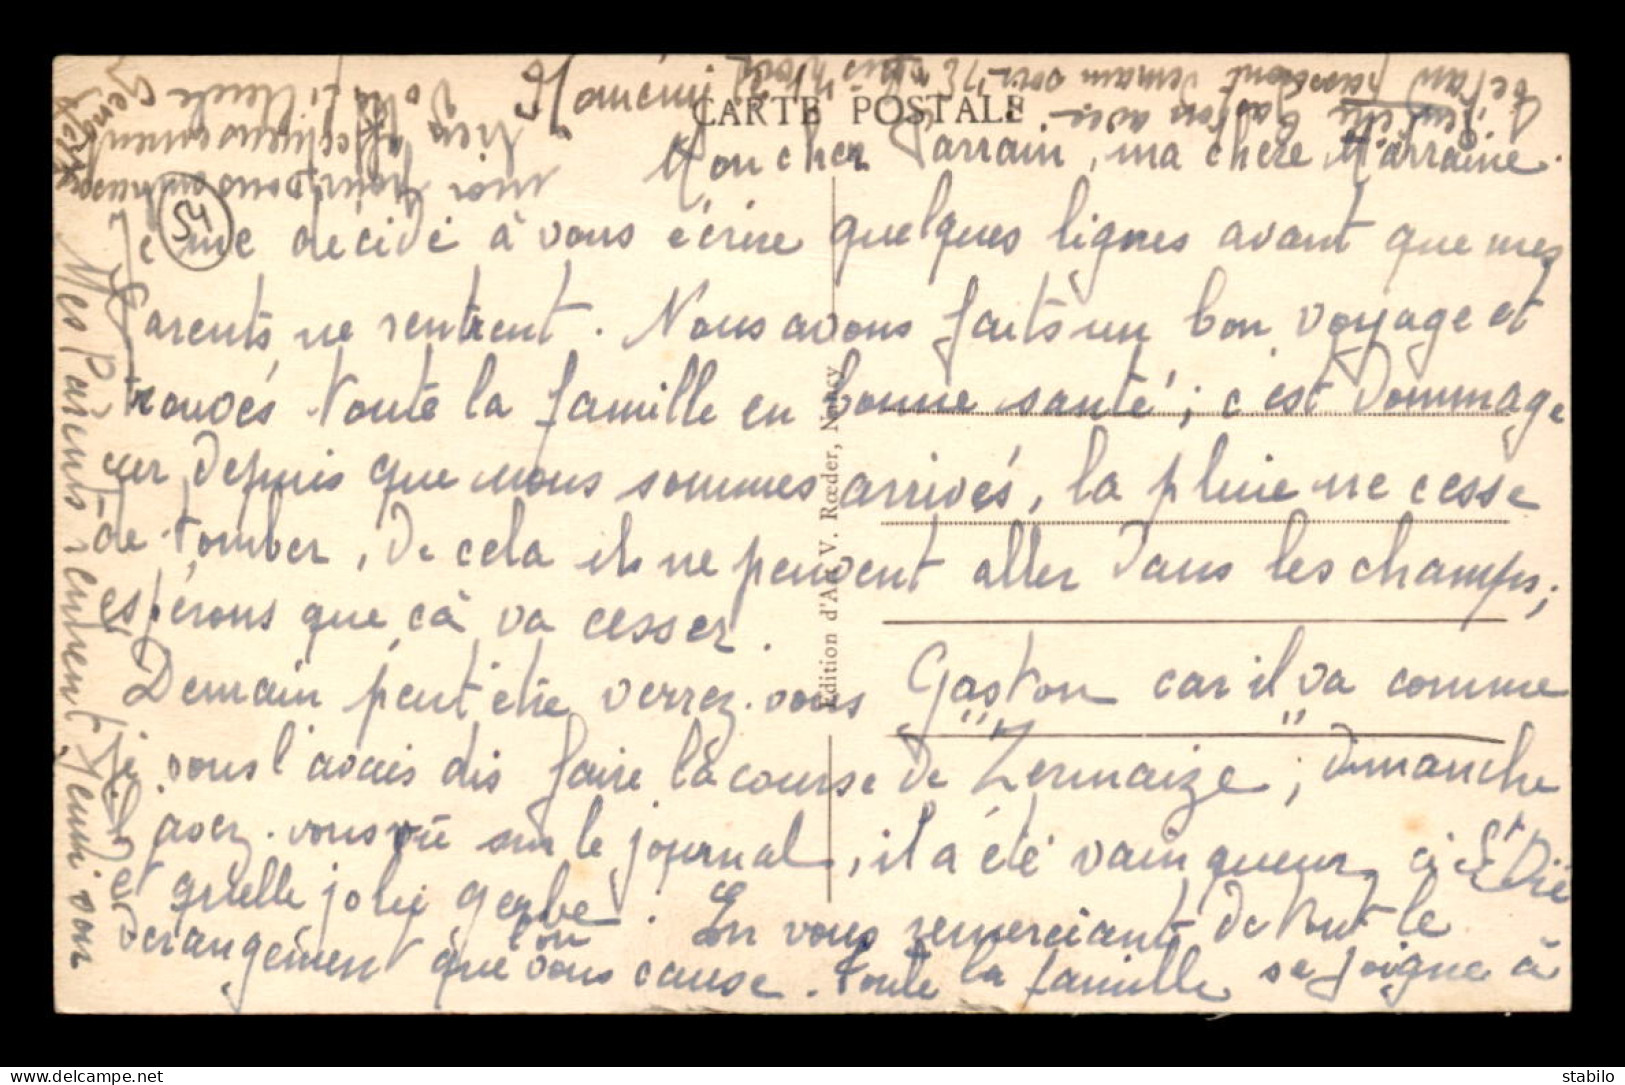 CARTE POSTALE
Mon cher Parrain, ma chère Marraine.
Je me décidé à vous écrire quelques lignes avant que mes
Parents ne rentrent. Nous avons faits un bon voyage et
trouvés toute la famille en bonne santé ; c'est dommage
car depuis que nous sommes arrivés, la pluie ne cesse
de tomber, de cela ils ne peuvent aller dans les champs ;
espérons que çà va cesser.
Demain peut être verrez-vous Gaston car il va comme
je vous l'avais dis faire la course de Sermaize ; dimanche
avez-vous vu sur le journal, il a été vainqueur à St Dié
et quelle jolie gerbe. En vous remerciant de tout le
dérangement que l'on vous cause. Toute la famille se joigne à
moi pour vous embrasser
affectueusement
Votre filleule
Mes Parents rentrent Jeudi soir
peut être Gaston avec
passeront demain soir
54
Edition d'Art V. Rœder, Nancy
stabilo